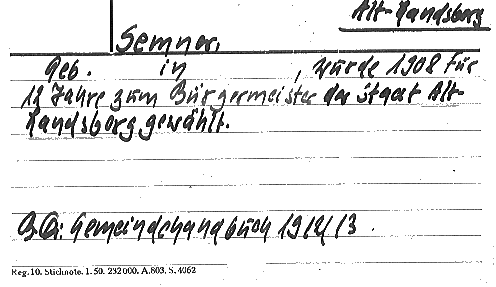 Alt-Landsberg
Semner.
Geb. in , wurde 1908 für
12 Jahre zum Bürgermeister der Stadt Alt-
Landsberg gewählt.
B.Q.: Gemeindehandbuch 1912/13.
Reg. 10. Stichnote. 1. 50. 232000. A.803. S. 4062